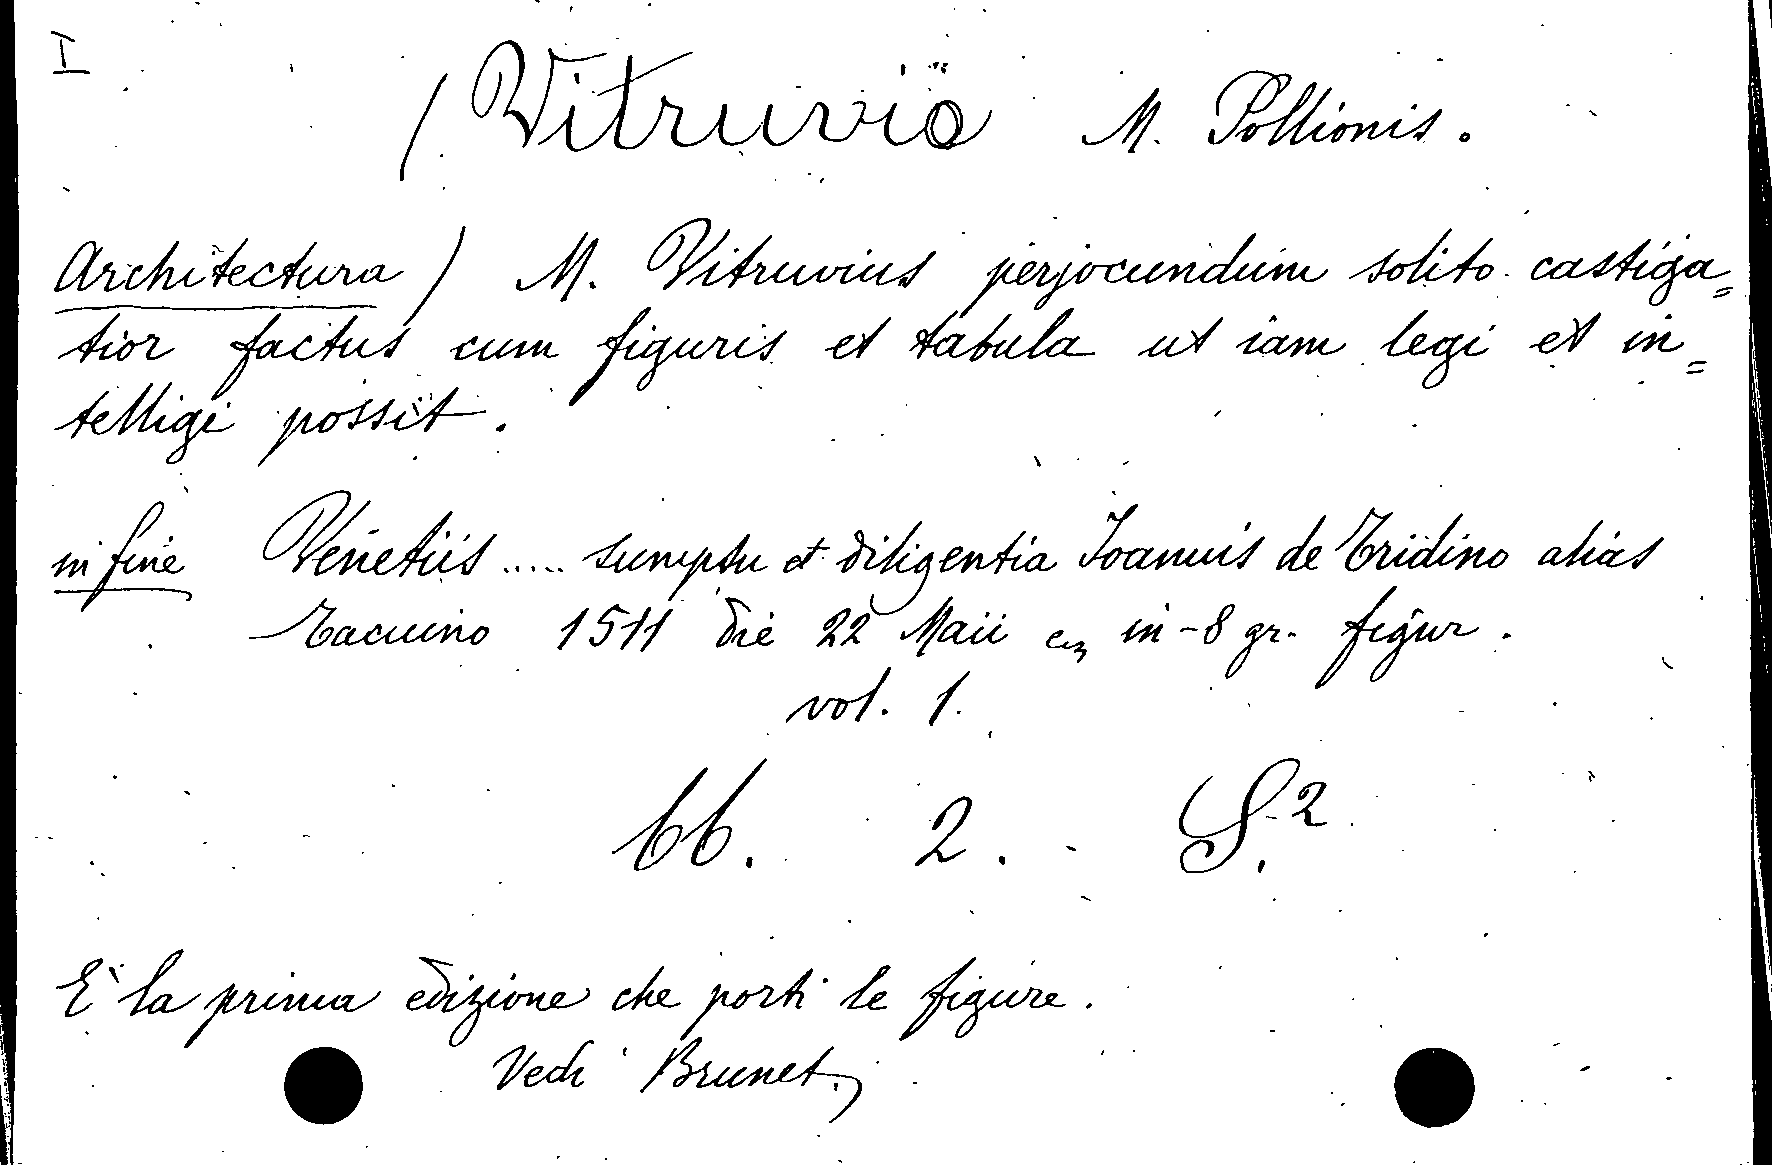 I
(Vitruvio M. Pollionis.
Architectura) M. Vitruvius perjocundum solito castiga=
tior factus cum figuris et tabula ut iam legi et in=
telligi possit.
in fine Venetiis ..... sumptu et diligentia Ioannis de Tridino alias
Tacuino 1511 die 22 Maii in-8 gr. figur.
vol. 1.
66. 2. S.2
E' la prima edizione che porti le figure.
Vedi Brunet.